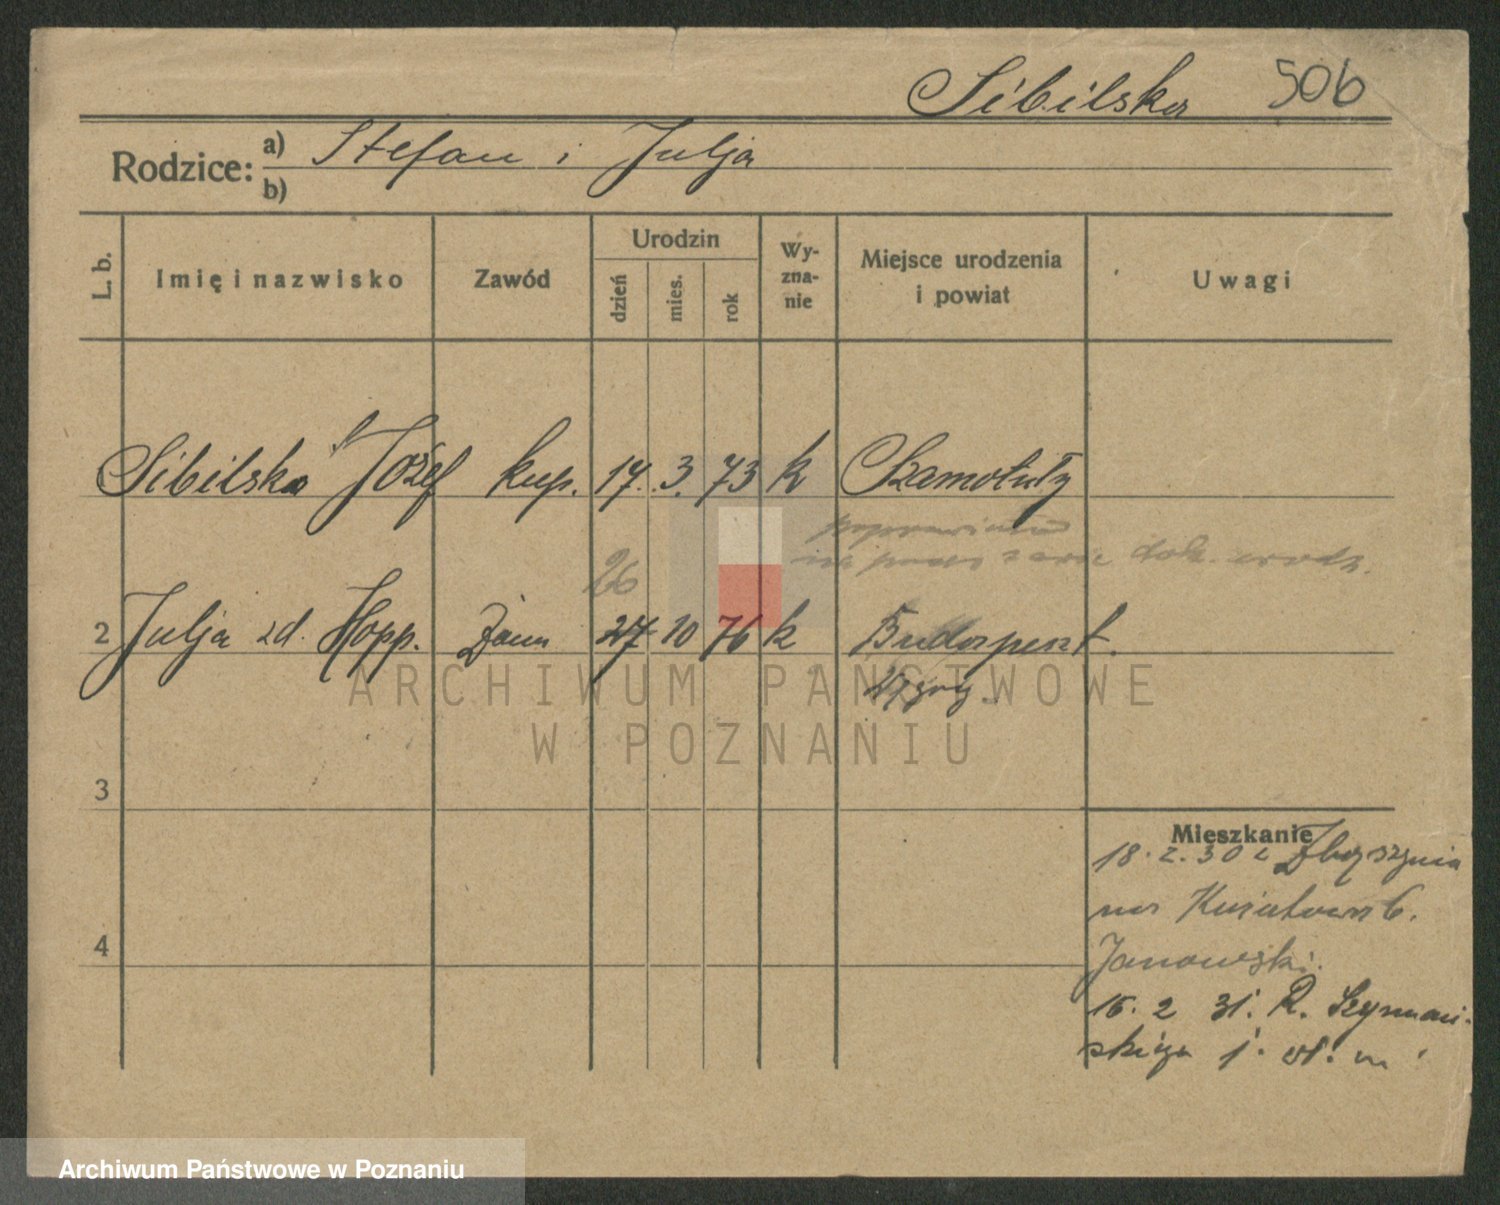 Sibilska 506
Rodzice: a) Stefan i Julja
b)
L. b. Imię i nazwisko Zawód Urodzin dzień mies. rok Wyznanie Miejsce urodzenia i powiat Uwagi
Sibilska Józef kup. 17. 3. 73 k Szamotuły
poprawiono
na prawo z dok. urodz.
26
2 Julja zd. Hopp. żona 27 10 76 k Budapeszt.
Węgry.
ARCHIWUM PAŃSTWOWE
W POZNANIU
3
Mieszkanie
18. 2. 30 z Zbąszynia
4
Janowski.
15. 2 31. R. Szymań-
skiego 1. wł. m
Archiwum Państwowe w Poznaniu